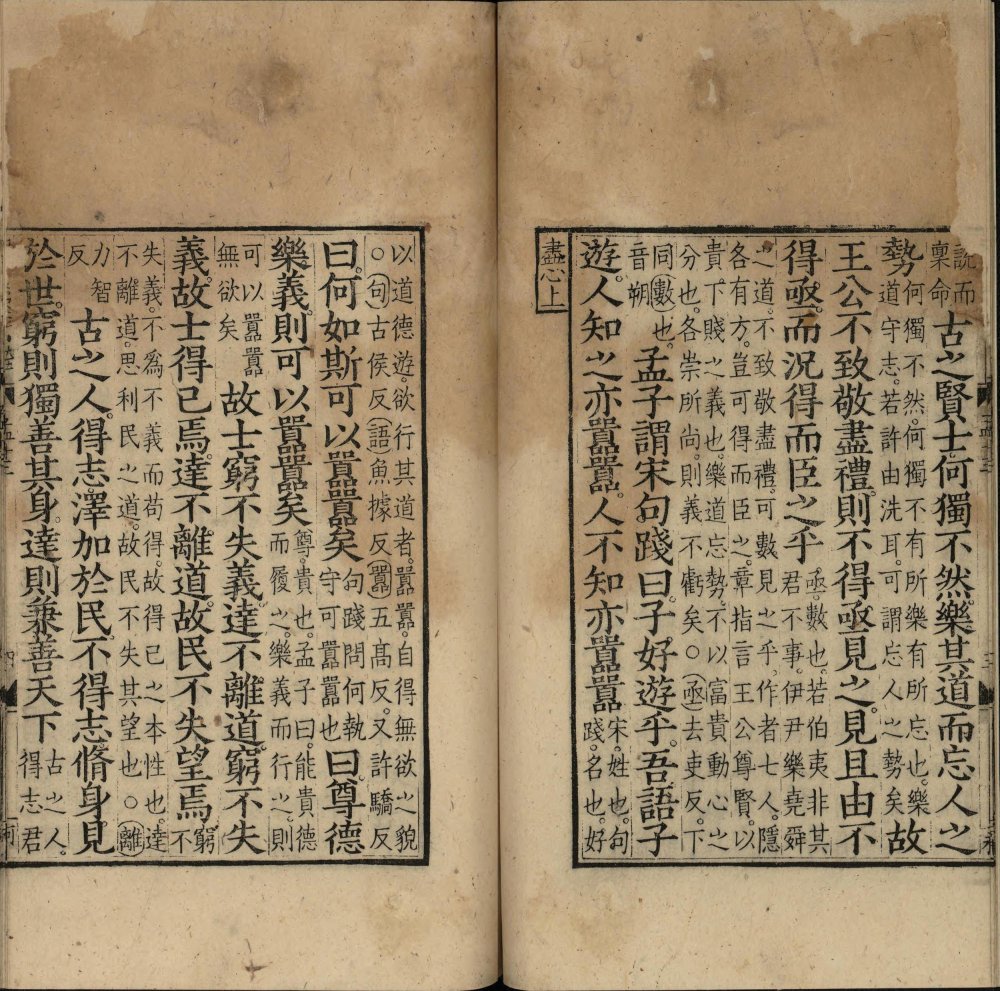 説而
稟命
古之賢士何獨不然樂其道而忘人之
勢
何獨不然何獨不有所樂有所忘也樂
道守志若許由洗耳可謂忘人之勢矣
故
王公不致敬盡禮則不得亟見之見且由不
得亟而況得而臣之乎
亟數也若伯夷非其
君不事伊尹樂堯舜
之道不致敬盡禮可數見之乎作者七人隱
各有方豈可得而臣之章指言王公尊賢以
貴下賤之義也樂道忘勢不以富貴動心之
分也各崇所尚則義不虧矣○亟去吏反下
同數也
音朔
孟子謂宋句踐曰子好遊乎吾語子
遊人知之亦囂囂人不知亦囂囂
宋姓也句
踐名也好
盡心上
以道德遊欲行其道者囂囂自得無欲之貌
○句古侯反語魚據反囂五高反又許驕反
曰何如斯可以囂囂矣
句踐問何執
守可囂囂也
曰尊德
樂義則可以囂囂矣
尊貴也孟子曰能貴德
而履之樂義而行之則
可以囂囂
無欲矣
故士窮不失義達不離道窮不失
義故士得己焉達不離道故民不失望焉
窮
不
失義不爲不義而苟得故得己之本性也達
不離道思利民之道故民不失其望也○離
力智
反
古之人得志澤加於民不得志脩身見
於世窮則獨善其身達則兼善天下
古之人
得志君